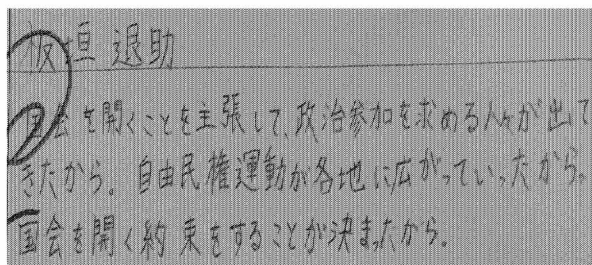 板垣退助
国会を開くことを主張して、政治参加を求める人々が出て
きたから。自由民権運動が各地に広がっていったから。
国会を開く約束をすることが決まったから。